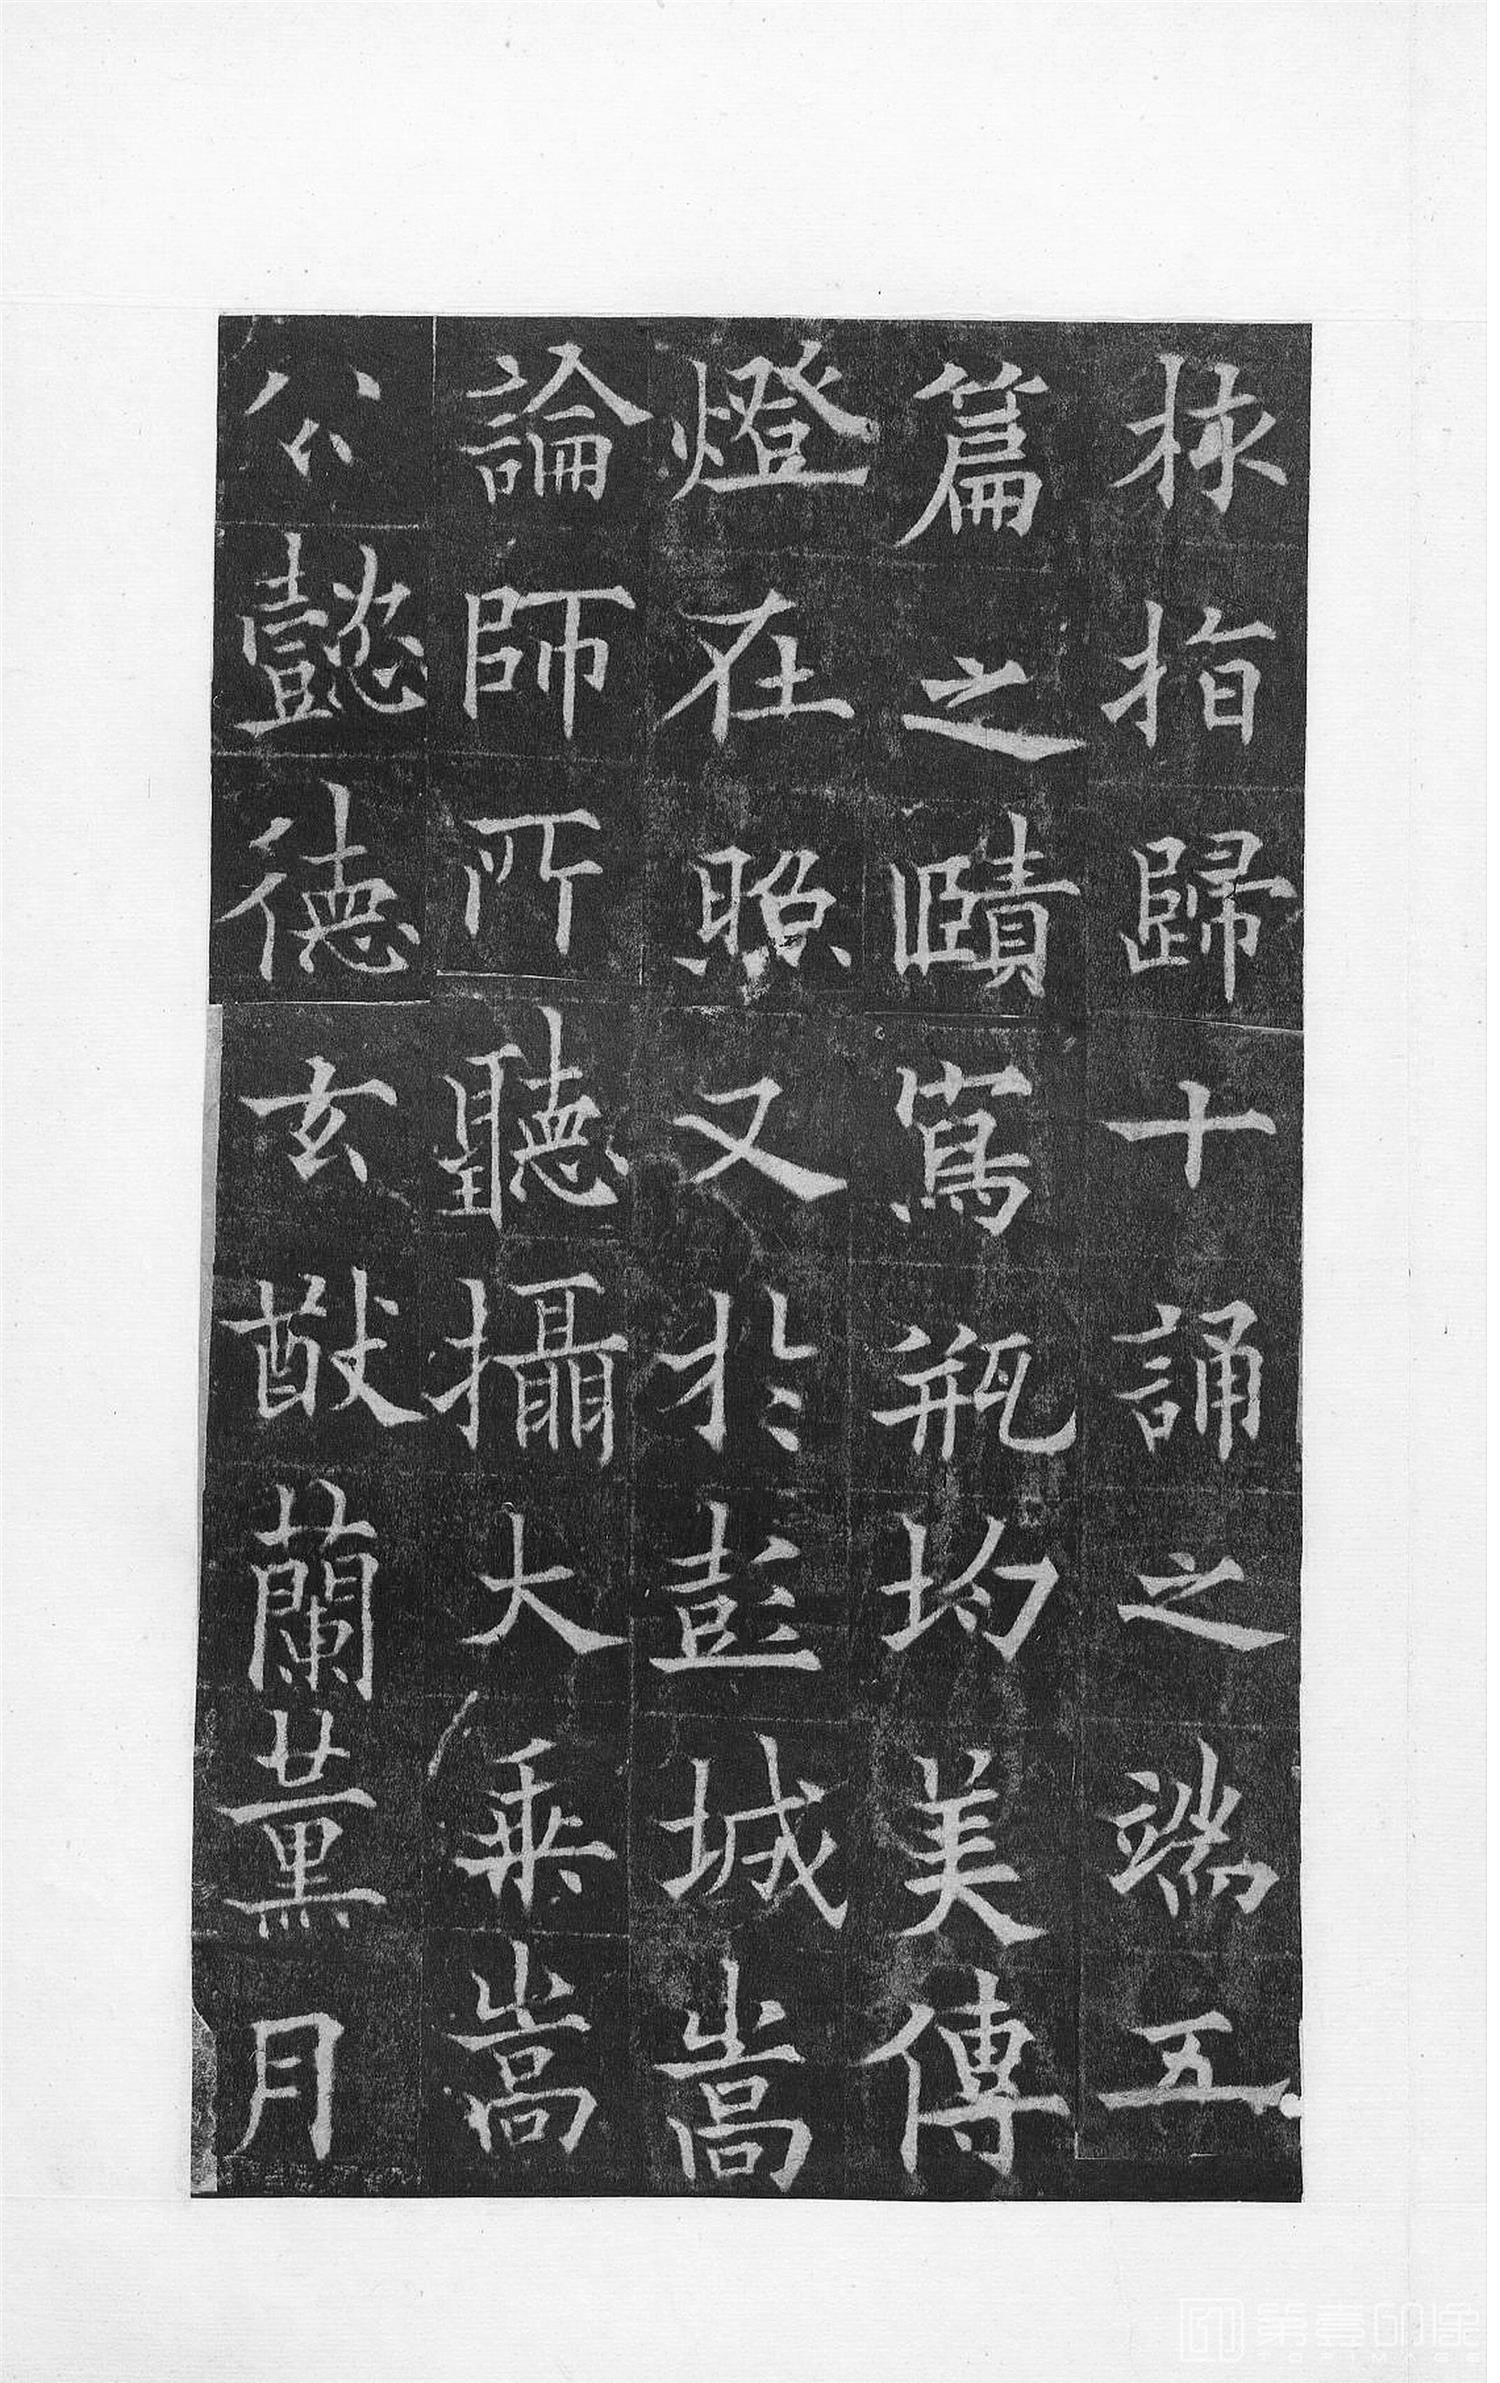 拯指歸十誦之端五
篇之賾寫瓶均美傳
燈在照又於彭城嵩
論師所聽攝大乘嵩
公懿德玄猷蘭薰月
第壹印像
TOPIMAGE